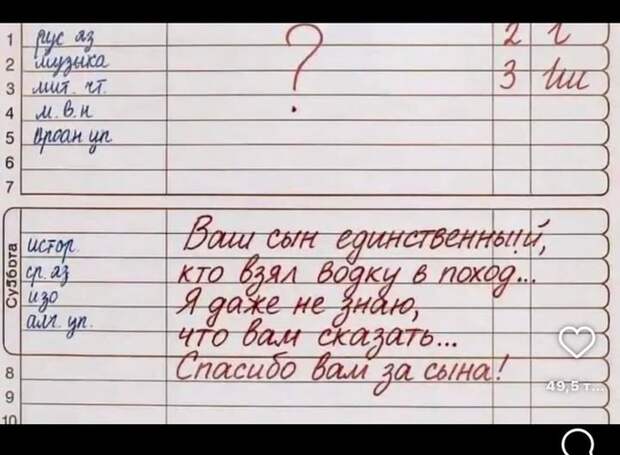 1 рус яз ? 2 г
2 музыка
3 лит. чт. 3
4 м. в. н
5
6
7
Суббота
истор.
ср. яз
изо
алг. уп.
Ваш сын единственный,
кто взял водку в поход...
Я даже не знаю,
что вам сказать...
Спасибо вам за сына!
8
9
10
49,5 т...